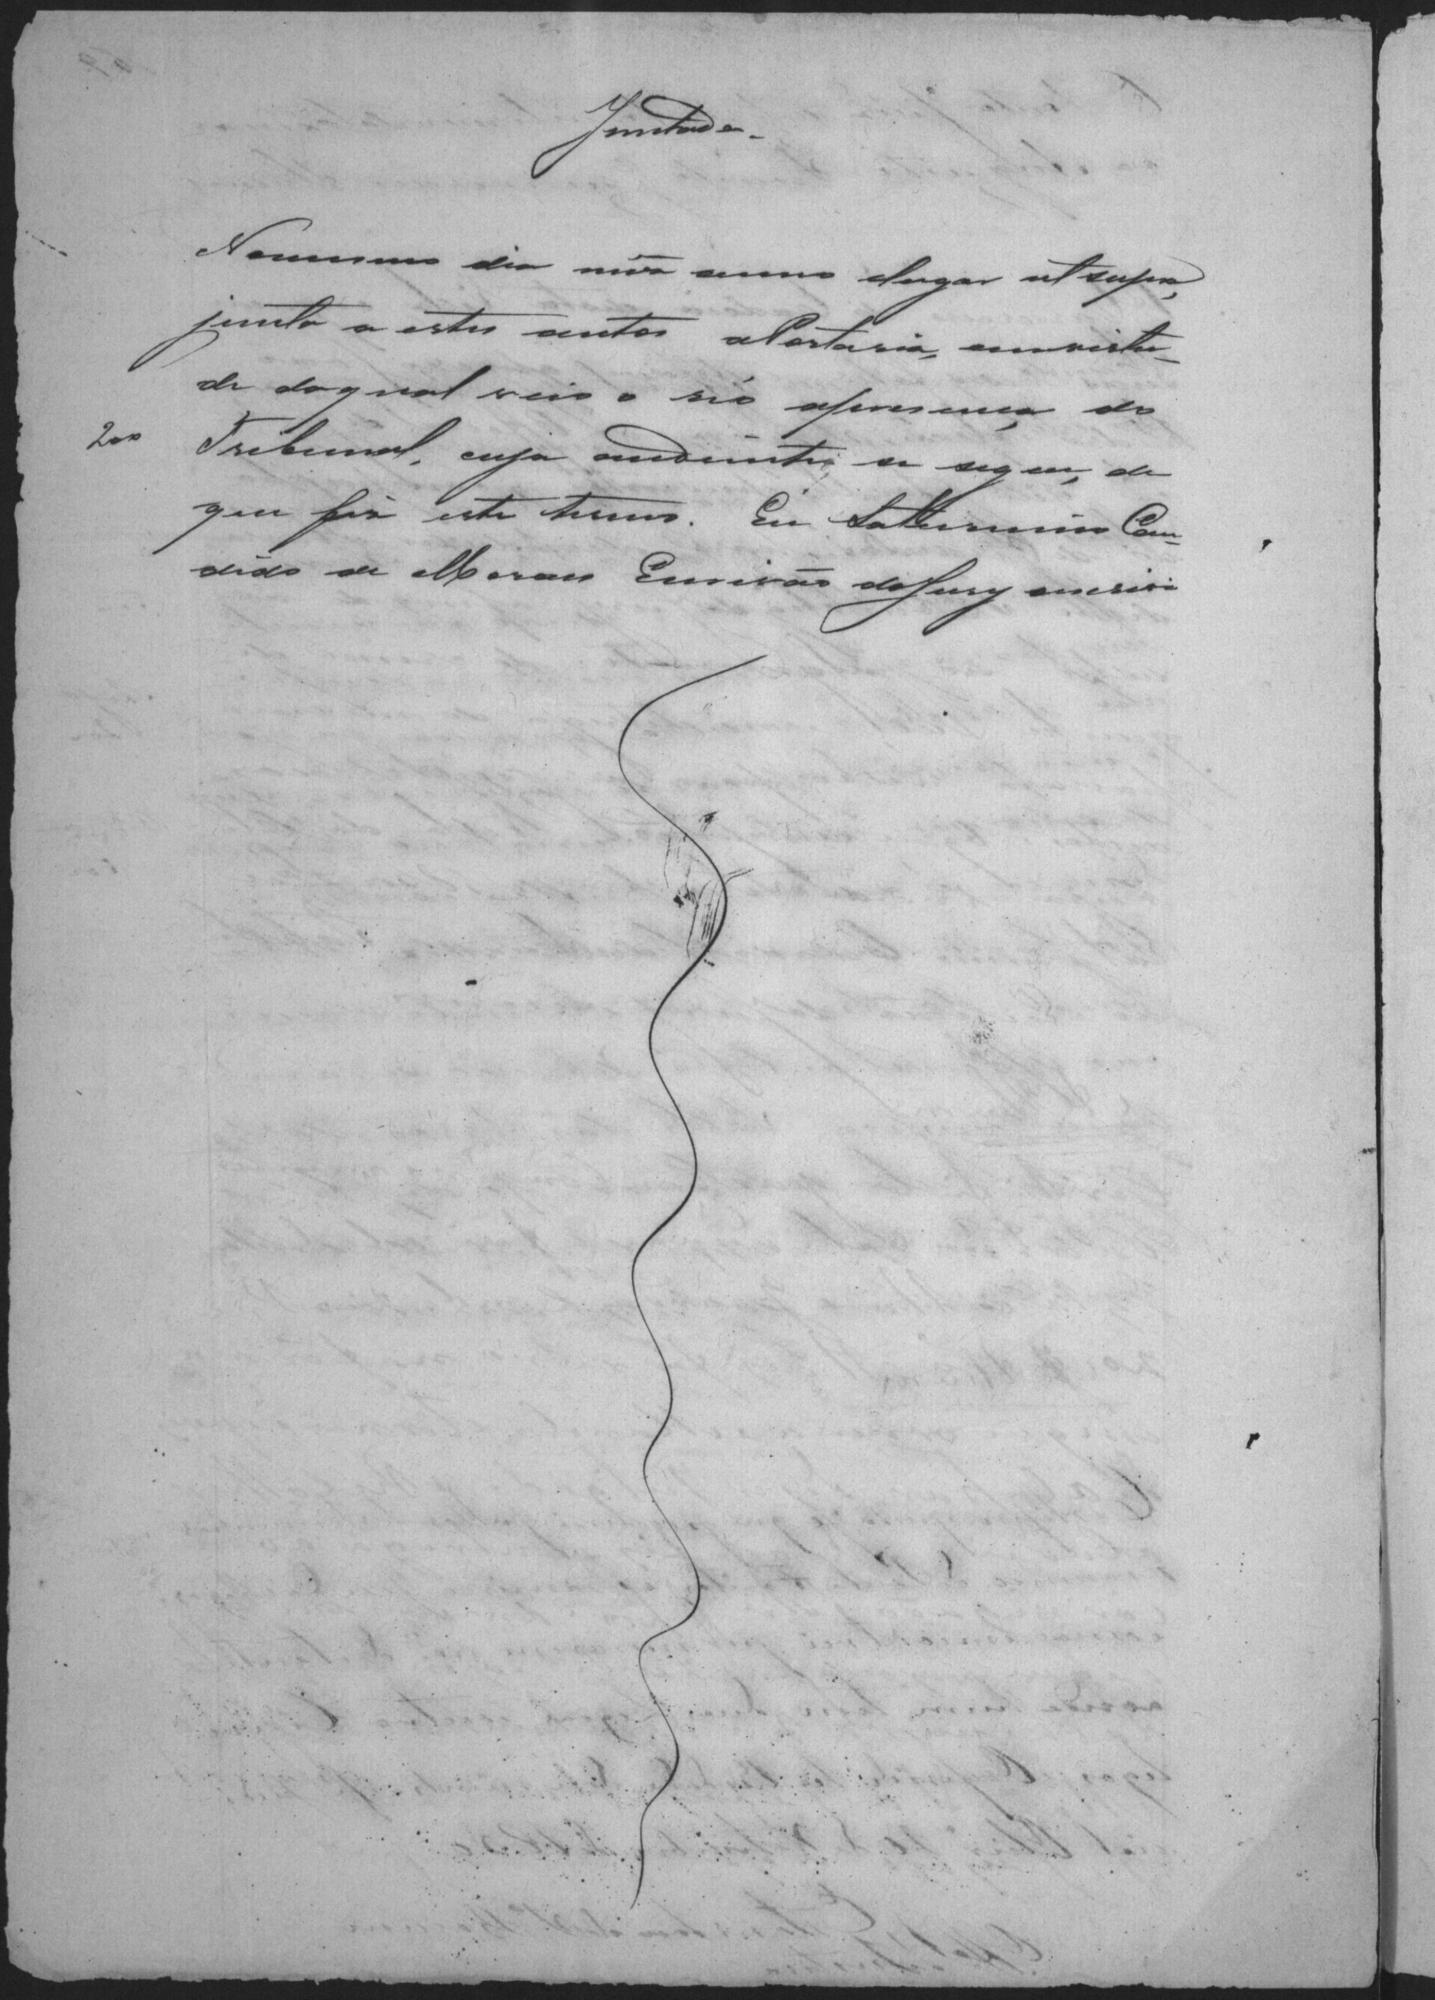 Juntada.
Nomesmo dia mez anno elugar ut supra,
junto a estes autos aPortaria, emvirtu-
de daqual veio o réo apresença do
200
Tribunal, cuja adiante se segue, de
que fiz este termo. Eu Saturnino Can-
dido de Moraes Escrivão doJury escrivi